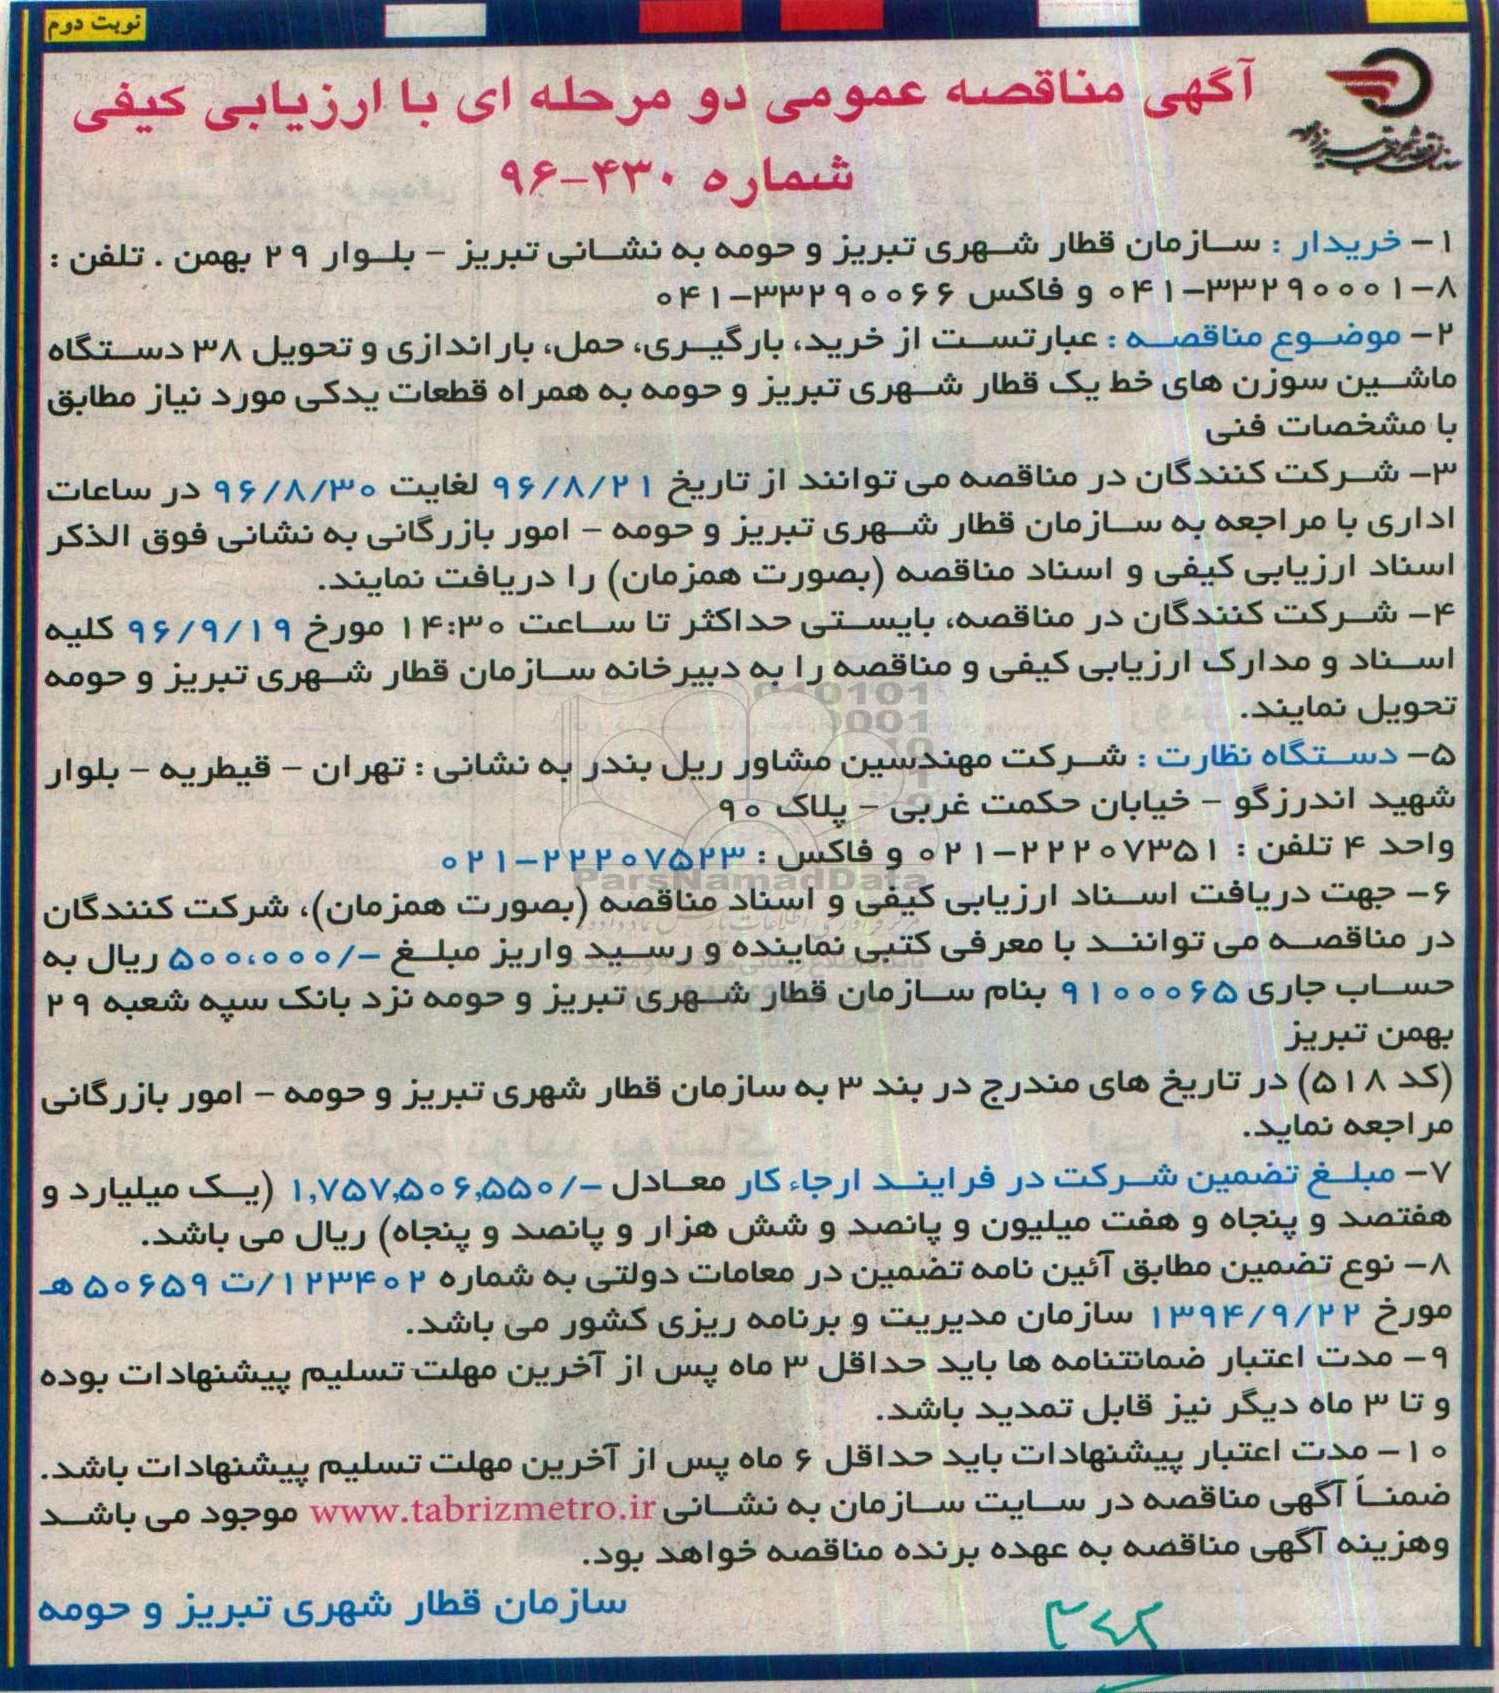 نوبت دوم
آگهی مناقصه عمومی دو مرحله ای با ارزیابی کیفی
شماره ۴۳۰-۹۶
۱- خریدار : سازمان قطار شهری تبریز و حومه به نشانی تبریز - بلوار ۲۹ بهمن . تلفن :
۸-۳۳۲۹۰۰۰۱-۰۴۱ و فاکس ۳۳۲۹۰۰۶۶-۰۴۱
۲- موضوع مناقصه : عبارتست از خرید، بارگیری، حمل، باراندازی و تحویل ۳۸ دستگاه
ماشین سوزن های خط یک قطار شهری تبریز و حومه به همراه قطعات یدکی مورد نیاز مطابق
با مشخصات فنی
۳- شرکت کنندگان در مناقصه می توانند از تاریخ ۹۶/۸/۲۱ لغایت ۹۶/۸/۳۰ در ساعات
اداری با مراجعه به سازمان قطار شهری تبریز و حومه - امور بازرگانی به نشانی فوق الذکر
اسناد ارزیابی کیفی و اسناد مناقصه (بصورت همزمان) را دریافت نمایند.
۴- شرکت کنندگان در مناقصه، بایستی حداکثر تا ساعت ۱۴:۳۰ مورخ ۹۶/۹/۱۹ کلیه
اسناد و مدارک ارزیابی کیفی و مناقصه را به دبیرخانه سازمان قطار شهری تبریز و حومه
تحویل نمایند.
۵- دستگاه نظارت : شرکت مهندسین مشاور ریل بندر به نشانی : تهران - قیطریه - بلوار
شهید اندرزگو - خیابان حکمت غربی - پلاک ۹۰
واحد ۴ تلفن : ۲۲۲۰۷۳۵۱-۰۲۱ و فاکس : ۲۲۲۰۷۵۲۳-۰۲۱
ParsNamadData
۶- جهت دریافت اسناد ارزیابی کیفی و اسناد مناقصه (بصورت همزمان)، شرکت کنندگان
در مناقصه می توانند با معرفی کتبی نماینده و رسید واریز مبلغ -/۵۰۰،۰۰۰ ریال به
حساب جاری ۹۱۰۰۰۶۵ بنام سازمان قطار شهری تبریز و حومه نزد بانک سپه شعبه ۲۹
بهمن تبریز
(کد ۵۱۸) در تاریخ های مندرج در بند ۳ به سازمان قطار شهری تبریز و حومه - امور بازرگانی
مراجعه نماید.
۷- مبلغ تضمین شرکت در فرایند ارجاء کار معادل -/۱,۷۵۷,۵۰۶,۵۵۰ (یک میلیارد و
هفتصد و پنجاه و هفت میلیون و پانصد و شش هزار و پانصد و پنجاه) ریال می باشد.
۸- نوع تضمین مطابق آئین نامه تضمین در معامات دولتی به شماره ۱۲۳۴۰۲/ت ۵۰۶۵۹ هـ
مورخ ۱۳۹۴/۹/۲۲ سازمان مدیریت و برنامه ریزی کشور می باشد.
۹- مدت اعتبار ضمانتنامه ها باید حداقل ۳ ماه پس از آخرین مهلت تسلیم پیشنهادات بوده
و تا ۳ ماه دیگر نیز قابل تمدید باشد.
۱۰- مدت اعتبار پیشنهادات باید حداقل ۶ ماه پس از آخرین مهلت تسلیم پیشنهادات باشد.
ضمناً آگهی مناقصه در سایت سازمان به نشانی www.tabrizmetro.ir موجود می باشد
وهزینه آگهی مناقصه به عهده برنده مناقصه خواهد بود.
سازمان قطار شهری تبریز و حومه